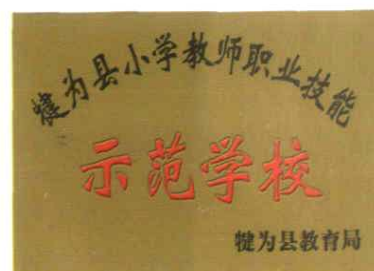 犍为县小学教师职业技能
示范学校
犍为县教育局